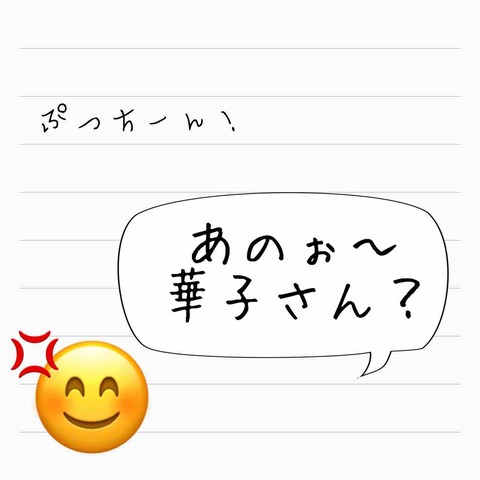 ぷっちーん!
あのぉ〜
華子さん?